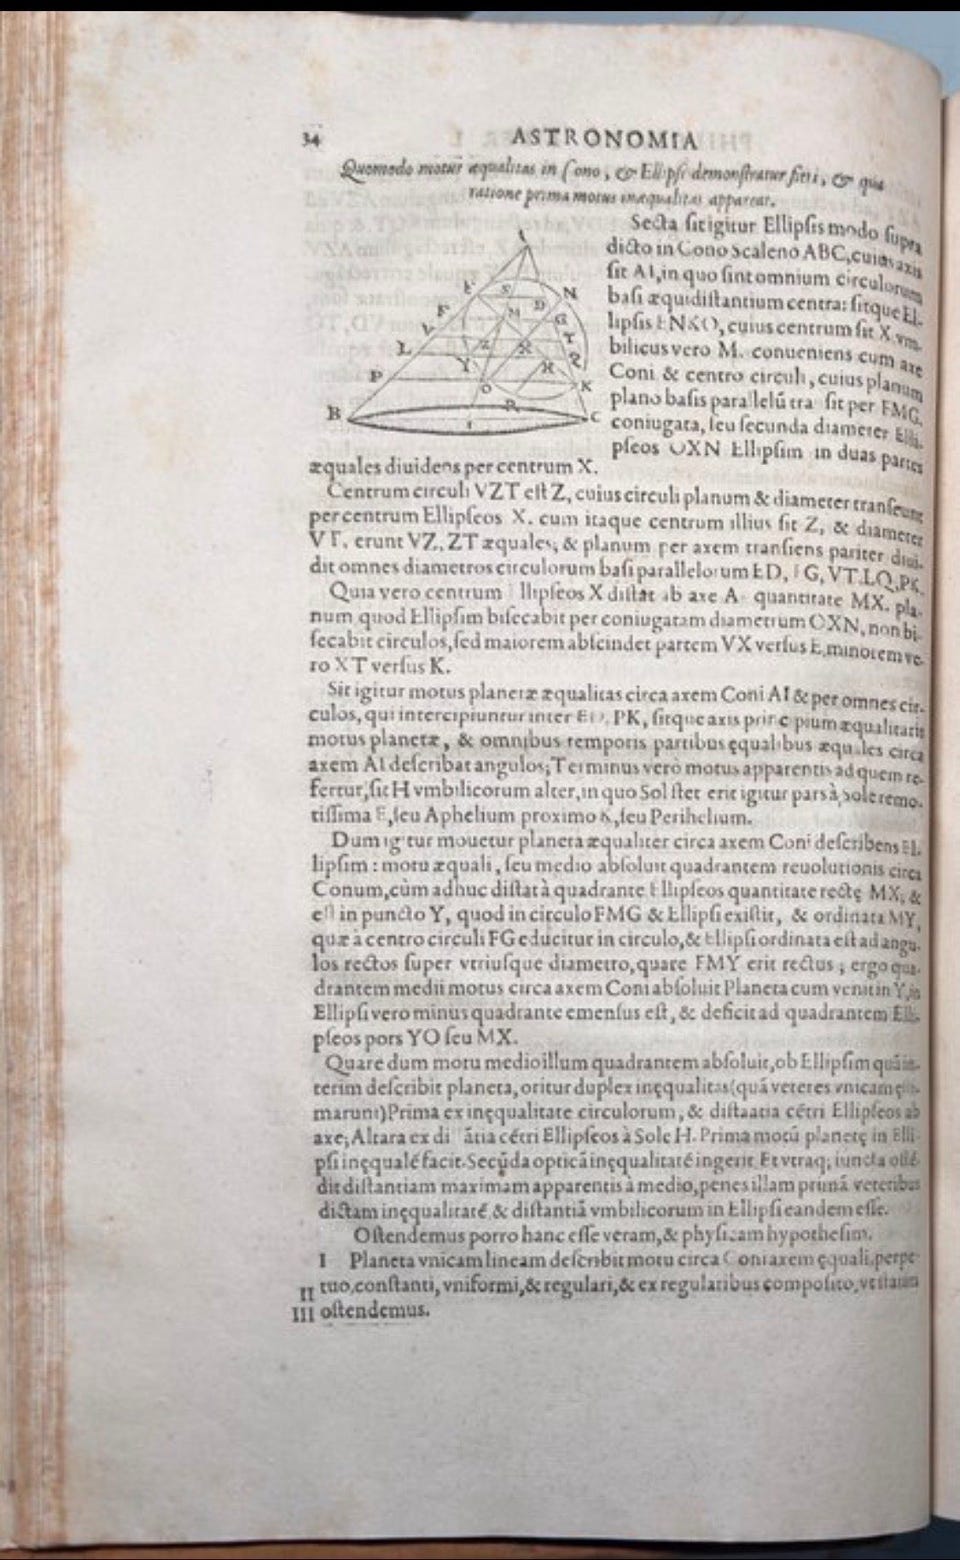 34 ASTRONOMIA
Quomodo motus æqualitas in Cono, & Ellipsi demonstratur fieri, & qua
ratione prima motus inæqualitas appareat.
Secta sit igitur Ellipsis modo supra
dicto in Cono Scaleno ABC, cuius axis
sit AI, in quo sint omnium circulorum
basi æquidistantium centra: sitque El-
lipsis ENKO, cuius centrum sit X, vm-
bilicus vero M. conueniens cum axe
Coni & centro circuli, cuius planum
plano basis parallelũ tra sit per FMG,
coniugata, seu secunda diameter Elli-
pseos OXN Ellipsim in duas partes
æquales diuidens per centrum X.
Centrum circuli VZT est Z, cuius circuli planum & diameter transeunt
per centrum Ellipseos X. cum itaque centrum illius sit Z, & diameter
VT. erunt VZ, ZT æquales; & planum per axem transiens pariter diui-
dit omnes diametros circulorum basi parallelorum ED, FG, VT. LQ, PK.
Quia vero centrum Ellipseos X distat ab axe A quantitate MX. pla-
num quod Ellipsim bisecabit per coniugatam diametrum OXN, non bi-
secabit circulos, sed maiorem abscindet partem VX versus E, minorem ve-
ro XT versus K.
Sit igitur motus planetæ æqualitas circa axem Coni AI & per omnes cir-
culos, qui intercipiuntur inter ED, PK, sitque axis principium æqualitatis
motus planetæ, & omnibus temporis partibus ęqualibus æquales circa
axem AI describat angulos; Terminus verò motus apparentis ad quem re-
fertur, sit H vmbilicorum alter, in quo Sol stet erit igitur pars à sole remo-
tissima E, seu Aphelium proximo K, seu Perihelium.
Dum igitur mouetur planeta æqualiter circa axem Coni describens El-
lipsim: motu æquali, seu medio absoluit quadrantem reuolutionis circa
Conum, cùm adhuc distat à quadrante Ellipseos quantitate rectę MX; &
est in puncto Y, quod in circulo FMG & Ellipsi existit, & ordinata MY,
quæ à centro circuli FG educitur in circulo, & Ellipsi ordinata est ad angu-
los rectos super vtriusque diametro, quare FMY erit rectus; ergo qua-
drantem medii motus circa axem Coni absoluit Planeta cum venit in Y, in
Ellipsi vero minus quadrante emensus est, & deficit ad quadrantem Elli-
pseos pors YO seu MX.
Quare dum motu medio illum quadrantem absoluit, ob Ellipsim quã in-
terim describit planeta, oritur duplex inęqualitas (quã veteres vnicam
marunt) Prima ex inęqualitate circulorum, & distaatia cẽtri Ellipseos ab
axe; Altara ex di ãtia cẽtri Ellipseos à Sole H. Prima motũ planetę in Elli-
psi inęqualẽ facit. Secũda opticã inęqualitatẽ ingerit. Et vtraq; iuncta ostẽ-
dit distantiam maximam apparentis à medio, penes illam primã veteribus
dictam inęqualitatẽ, & distantiã vmbilicorum in Ellipsi eandem esse.
Ostendemus porro hanc esse veram, & physicam hypothesim.
I Planeta vnicam lineam describit motu circa Coni axem ęquali, perpe-
II tuo, constanti, vniformi, & regulari, & ex regularibus composito, vt statim
III ostendemus.